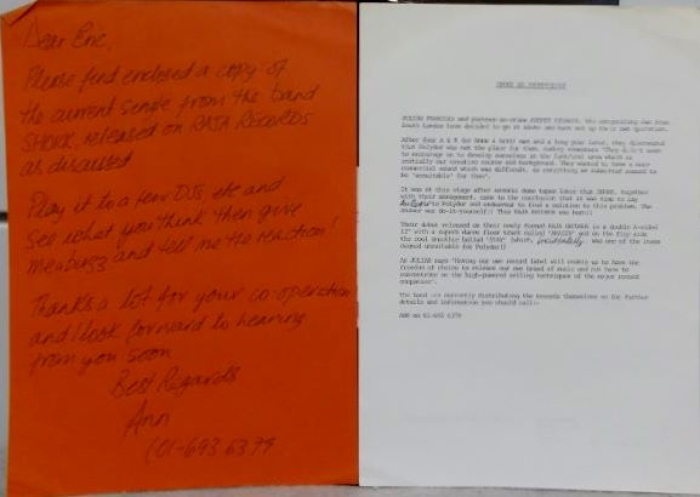 Dear Eric,
Please find enclosed a copy of
the current single from the band
SHOKK, released on RAJA RECORDS
as discussed
Play it to a few DJs, etc and
see what you think then give
me a buzz and tell me the reaction!
Thanks a lot for your co-operation
and I look forward to hearing
from you soon
Best Regards
Ann
(01-693 6379
and partner-in-crime
South London have decided to go it alone and have set up their own
After four A & R
that Polydor was not the place for them, making comments 'They didn't seem
to encourage us to develop ourselves in the funk/soul area which is
initially our creative source and background. They wanted to have a more
commercial sound which was difficult, as everything we submitted seemed to
be 'unsuitable' for them'.
It was at this stage after several demo tapes later that together
with their management, came to the conclusion that it was time to say
to Polydor and endeavour to find a solution to this problem. The
answer was do-it-yourself! Thus RAJA RECORDS was born!!
Their debut released on their newly formed RAJA RECORDS is a double A-sided
12" with a superb dance floor track called and on the flip side
the cool smoochie ballad 'STAY' (which, incidentally was one of the items
deemed unsuitable for Polydor)!
As JULIAN says 'Having our own record label will enable us to have the
freedom of choice to release our own brand of music and not have to
concentrate on the high-powered selling techniques of the major record
companies'.
The band are currently distributing the records themselves so for further
details and information you should call:-
ANN on 01-693 6379